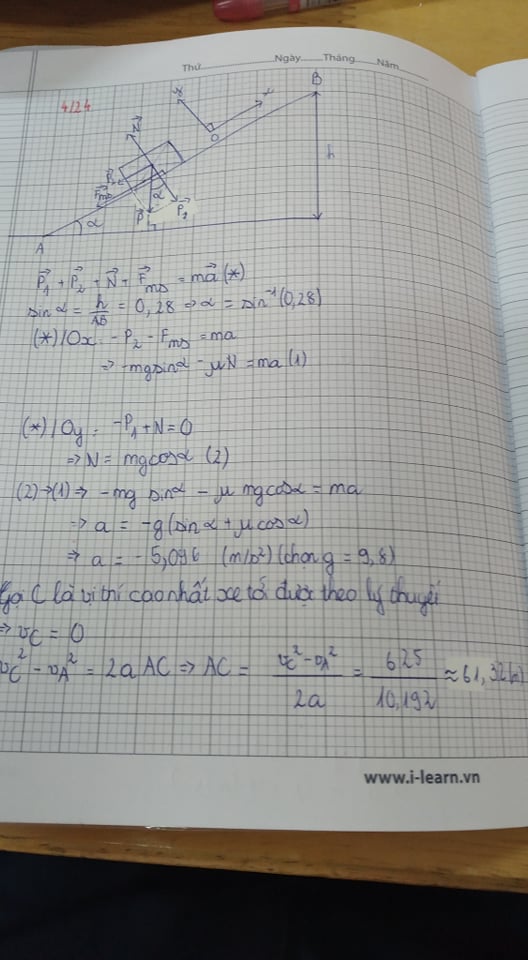 Thứ Ngày Tháng Năm
4/24
B
y
x
O
N⃗
h
F⃗ms
α
P⃗
P⃗₁
α
A
P⃗₁ + P⃗₂ + N⃗ + F⃗ms = ma⃗ (*)
sin α = h/AB = 0,28 => α = sin⁻¹(0,28)
(*)/Ox: -P₂ - Fms = ma
=> -mg sinα - μN = ma (1)
(*)/Oy: -P₁ + N = 0
=> N = mg cosα (2)
(2)->(1) => -mg sinα - μ mg cosα = ma
=> a = -g(sin α + μ cosα)
=> a = -5,096 (m/s²) (chọn g = 9,8)
Gọi C là vị trí cao nhất xe tới được theo lý thuyết
=> vC = 0
vC² - vA² = 2a AC => AC = (vC² - vA²)/2a = 625/10,192 ≈ 61,32(m)
www.i-learn.vn